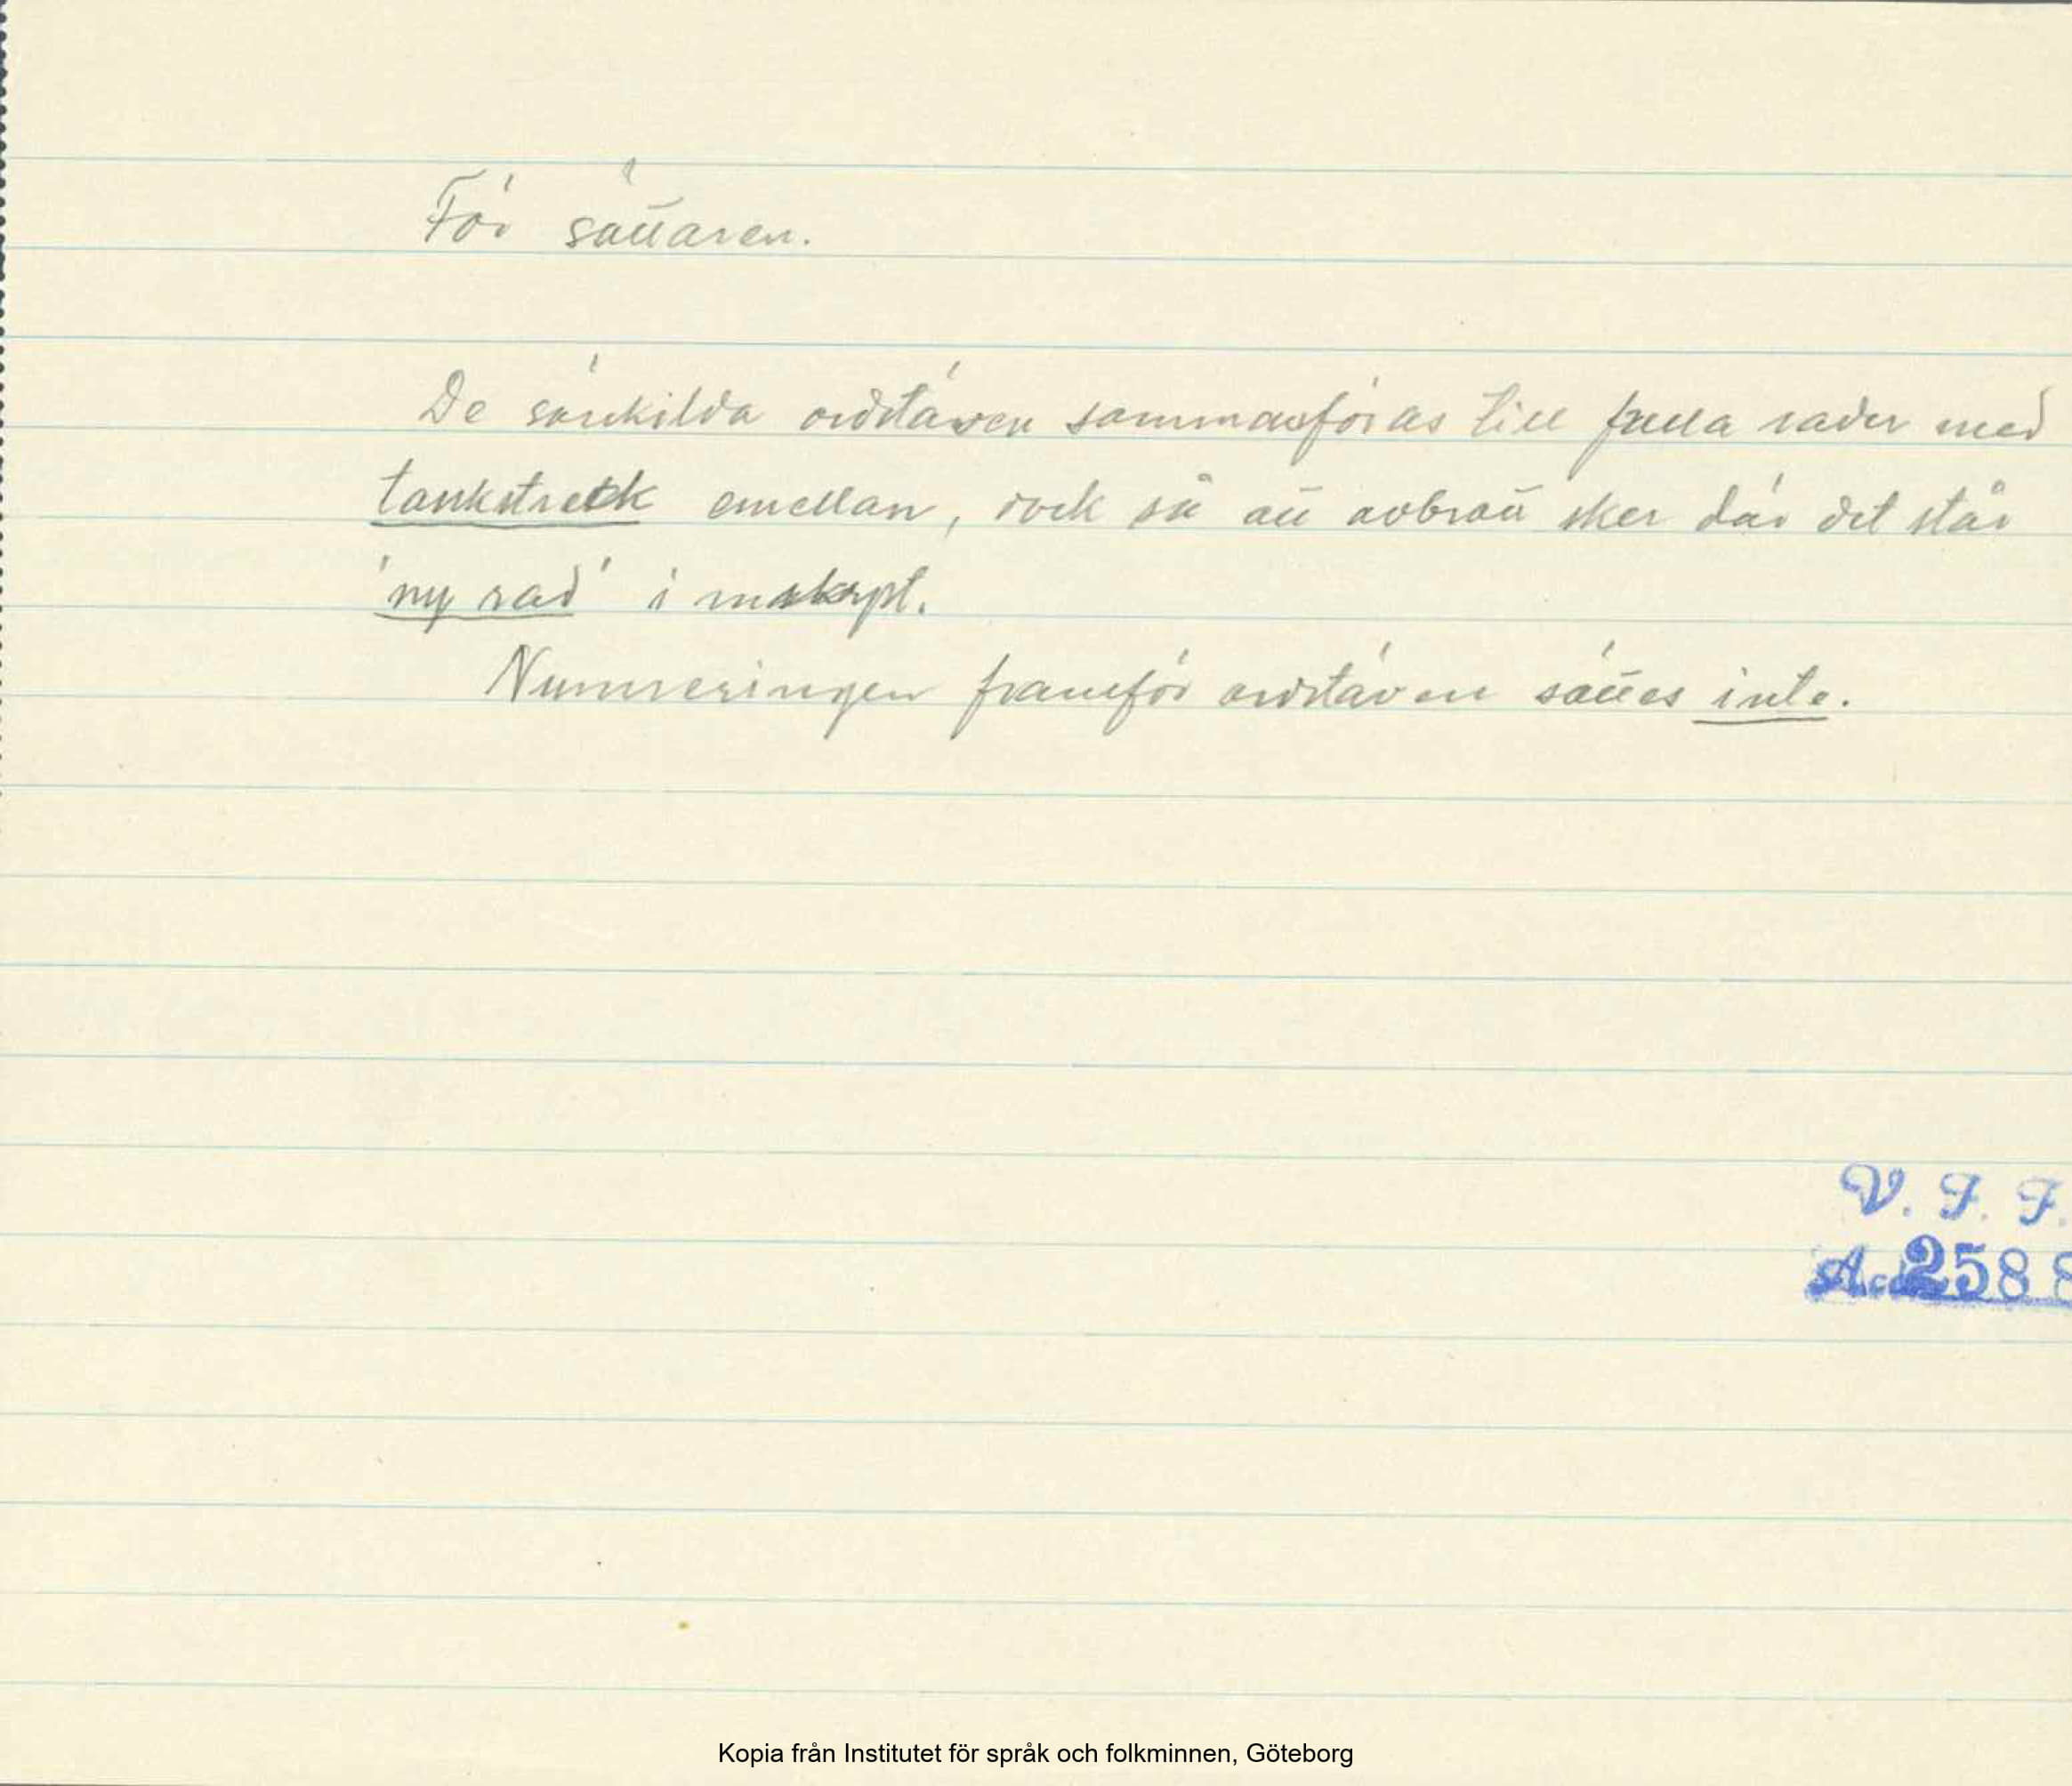 För sättaren.
De särskilda ordstäven sammanföras till fulla rader med
tankstreck emellan, dock så att avbrott sker där det står
'ny rad' i mskrpt.
Numreringen framför ordstäven sättes inte.
V. F. F.
Acc. 2588
Kopia från Institutet för språk och folkminnen, Göteborg